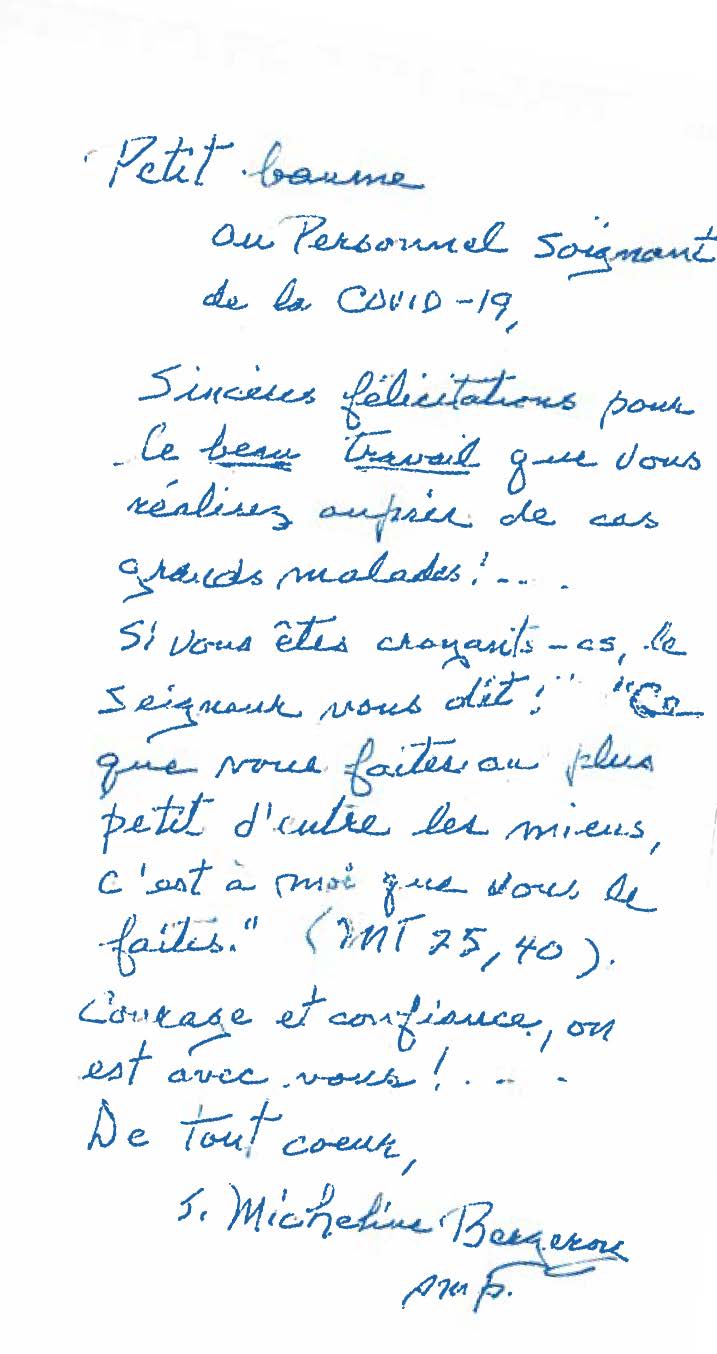 Petit baume
au Personnel Soignant
de la COVID-19,
Sincères félicitations pour
le beau travail que vous
réalisez auprès de ces
grands malades!...
Si vous êtes croyants-es, le
Seigneur vous dit: "Ce
que vous faites au plus
petit d'entre les miens,
c'est à moi que vous le
faites." (MT 25,40).
Courage et confiance, on
est avec vous!...
De tout coeur,
S. Micheline Bergeron